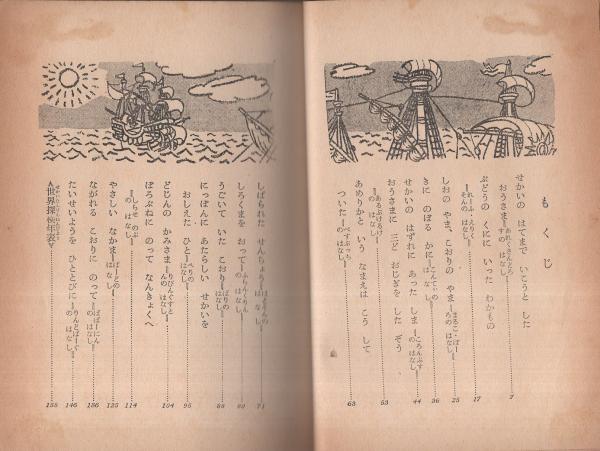 もくじ
せかいの はてまで いこうと した
おうさま―あれくさんどろすの はなし― 7
ぶどうの くにに いった わかもの
―れーふ・えりくそんの はなし― 17
しおの やま、こおりの やま―まるこ・ぽーろの はなし― 25
きに のぼる かに―の はなし― 36
せかいの はずれに あった しま―ころんぶすの はなし― 44
おうさまに 三ど おじぎを した ぞう
―あるぶけるけの はなし― 53
あめりかと いう なまえは こう して
ついた―べすぷっちの はなし― 63
しばられた せんちょう―の はなし― 71
しろくまを おって―の はなし― 80
うごいて いた こおり―ぱりの はなし― 88
にっぽんに あたらしい せかいを
おしえた ひと―ぺりの はなし― 95
どじんの かみさま―りびんぐすとんの はなし― 104
ぼろぶねに のって なんきょくへ
―しらせ のぶの はなし― 114
やさしい なかま―ばーどの はなし― 125
ながれる こおりに のって―ぱぱーにんの はなし― 136
たいせいようを ひととびに―りんどばーぐの はなし― 146
＜世界探検年表＞ 155